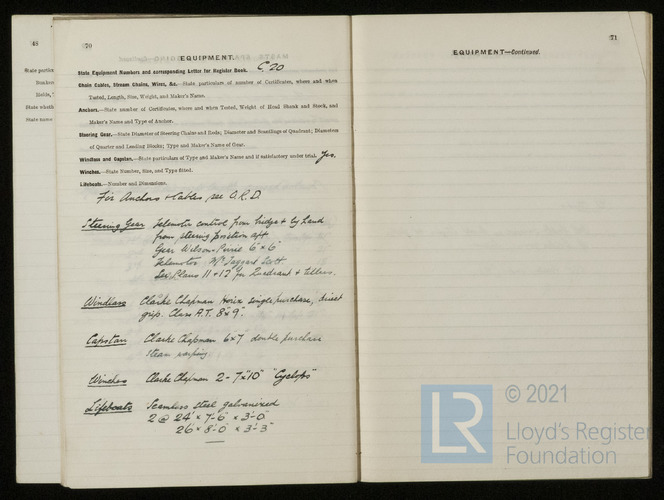 48
State partic
Number
Holds, T
State wheth
State name
70
EQUIPMENT.
State Equipment Numbers and corresponding Letter for Register Book. C. 20
Chain Cables, Stream Chains, Wires, &c.—State particulars of number of Certificates, where and when
Tested, Length, Size, Weight, and Maker's Name.
Anchors.—State number of Certificates, where and when Tested, Weight of Head Shank and Stock, and
Maker's Name and Type of Anchor.
Steering Gear.—State Diameter of Steering Chains and Rods; Diameter and Scantlings of Quadrant; Diameters
of Quarter and Leading Blocks; Type and Maker's Name of Gear.
Windlass and Capstan.—State particulars of Type and Maker's Name and if satisfactory under trial. Yes.
Winches.—State Number, Size, and Type fitted.
Lifeboats.—Number and Dimensions.
For Anchors & Cables see O.R.D.
Steering Gear Telemotor control from bridge & by hand
from steering position aft
Gear Wilson Pirrie 6" x 6"
Telemotor McTaggart Scott
See Plans 11 & 12 for Quadrant & tillers.
Windlass Clarke Chapman Horiz single purchase, direct
grip. Class A.T. 8" x 9".
Capstan Clarke Chapman 6" x 7" double purchase
steam warping
Winches Clarke Chapman 2 - 7" x 10" "Cyclops"
Lifeboats Seamless steel galvanized
2 @ 24' x 7'-6" x 3'-0"
26' x 8'-0" x 3'-3"
71
EQUIPMENT—Continued.
LR
© 2021
Lloyd's Register
Foundation